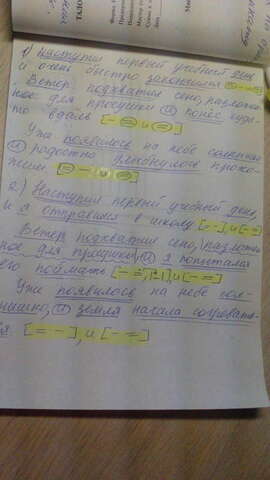 ТАЛО
1) Наступил первый учебный день
и очень быстро закончился [= – =]
Ветер подхватил сено, разложен-
ное для просушки и понёс куда-
то вдаль [– = и =]
Уже появилось на небе солнышко
и радостно улыбнулось прохо-
жим [= – и =]
2) Наступил первый учебный день,
и я отправился в школу [= –], и [– =]
Ветер подхватил сено, разложен-
ное для просушки, и я попытался
его поймать [– =, |~|], и [– =]
Уже появилось на небе сол-
нышко, и земля начала согревать-
ся [= –], и [– =]